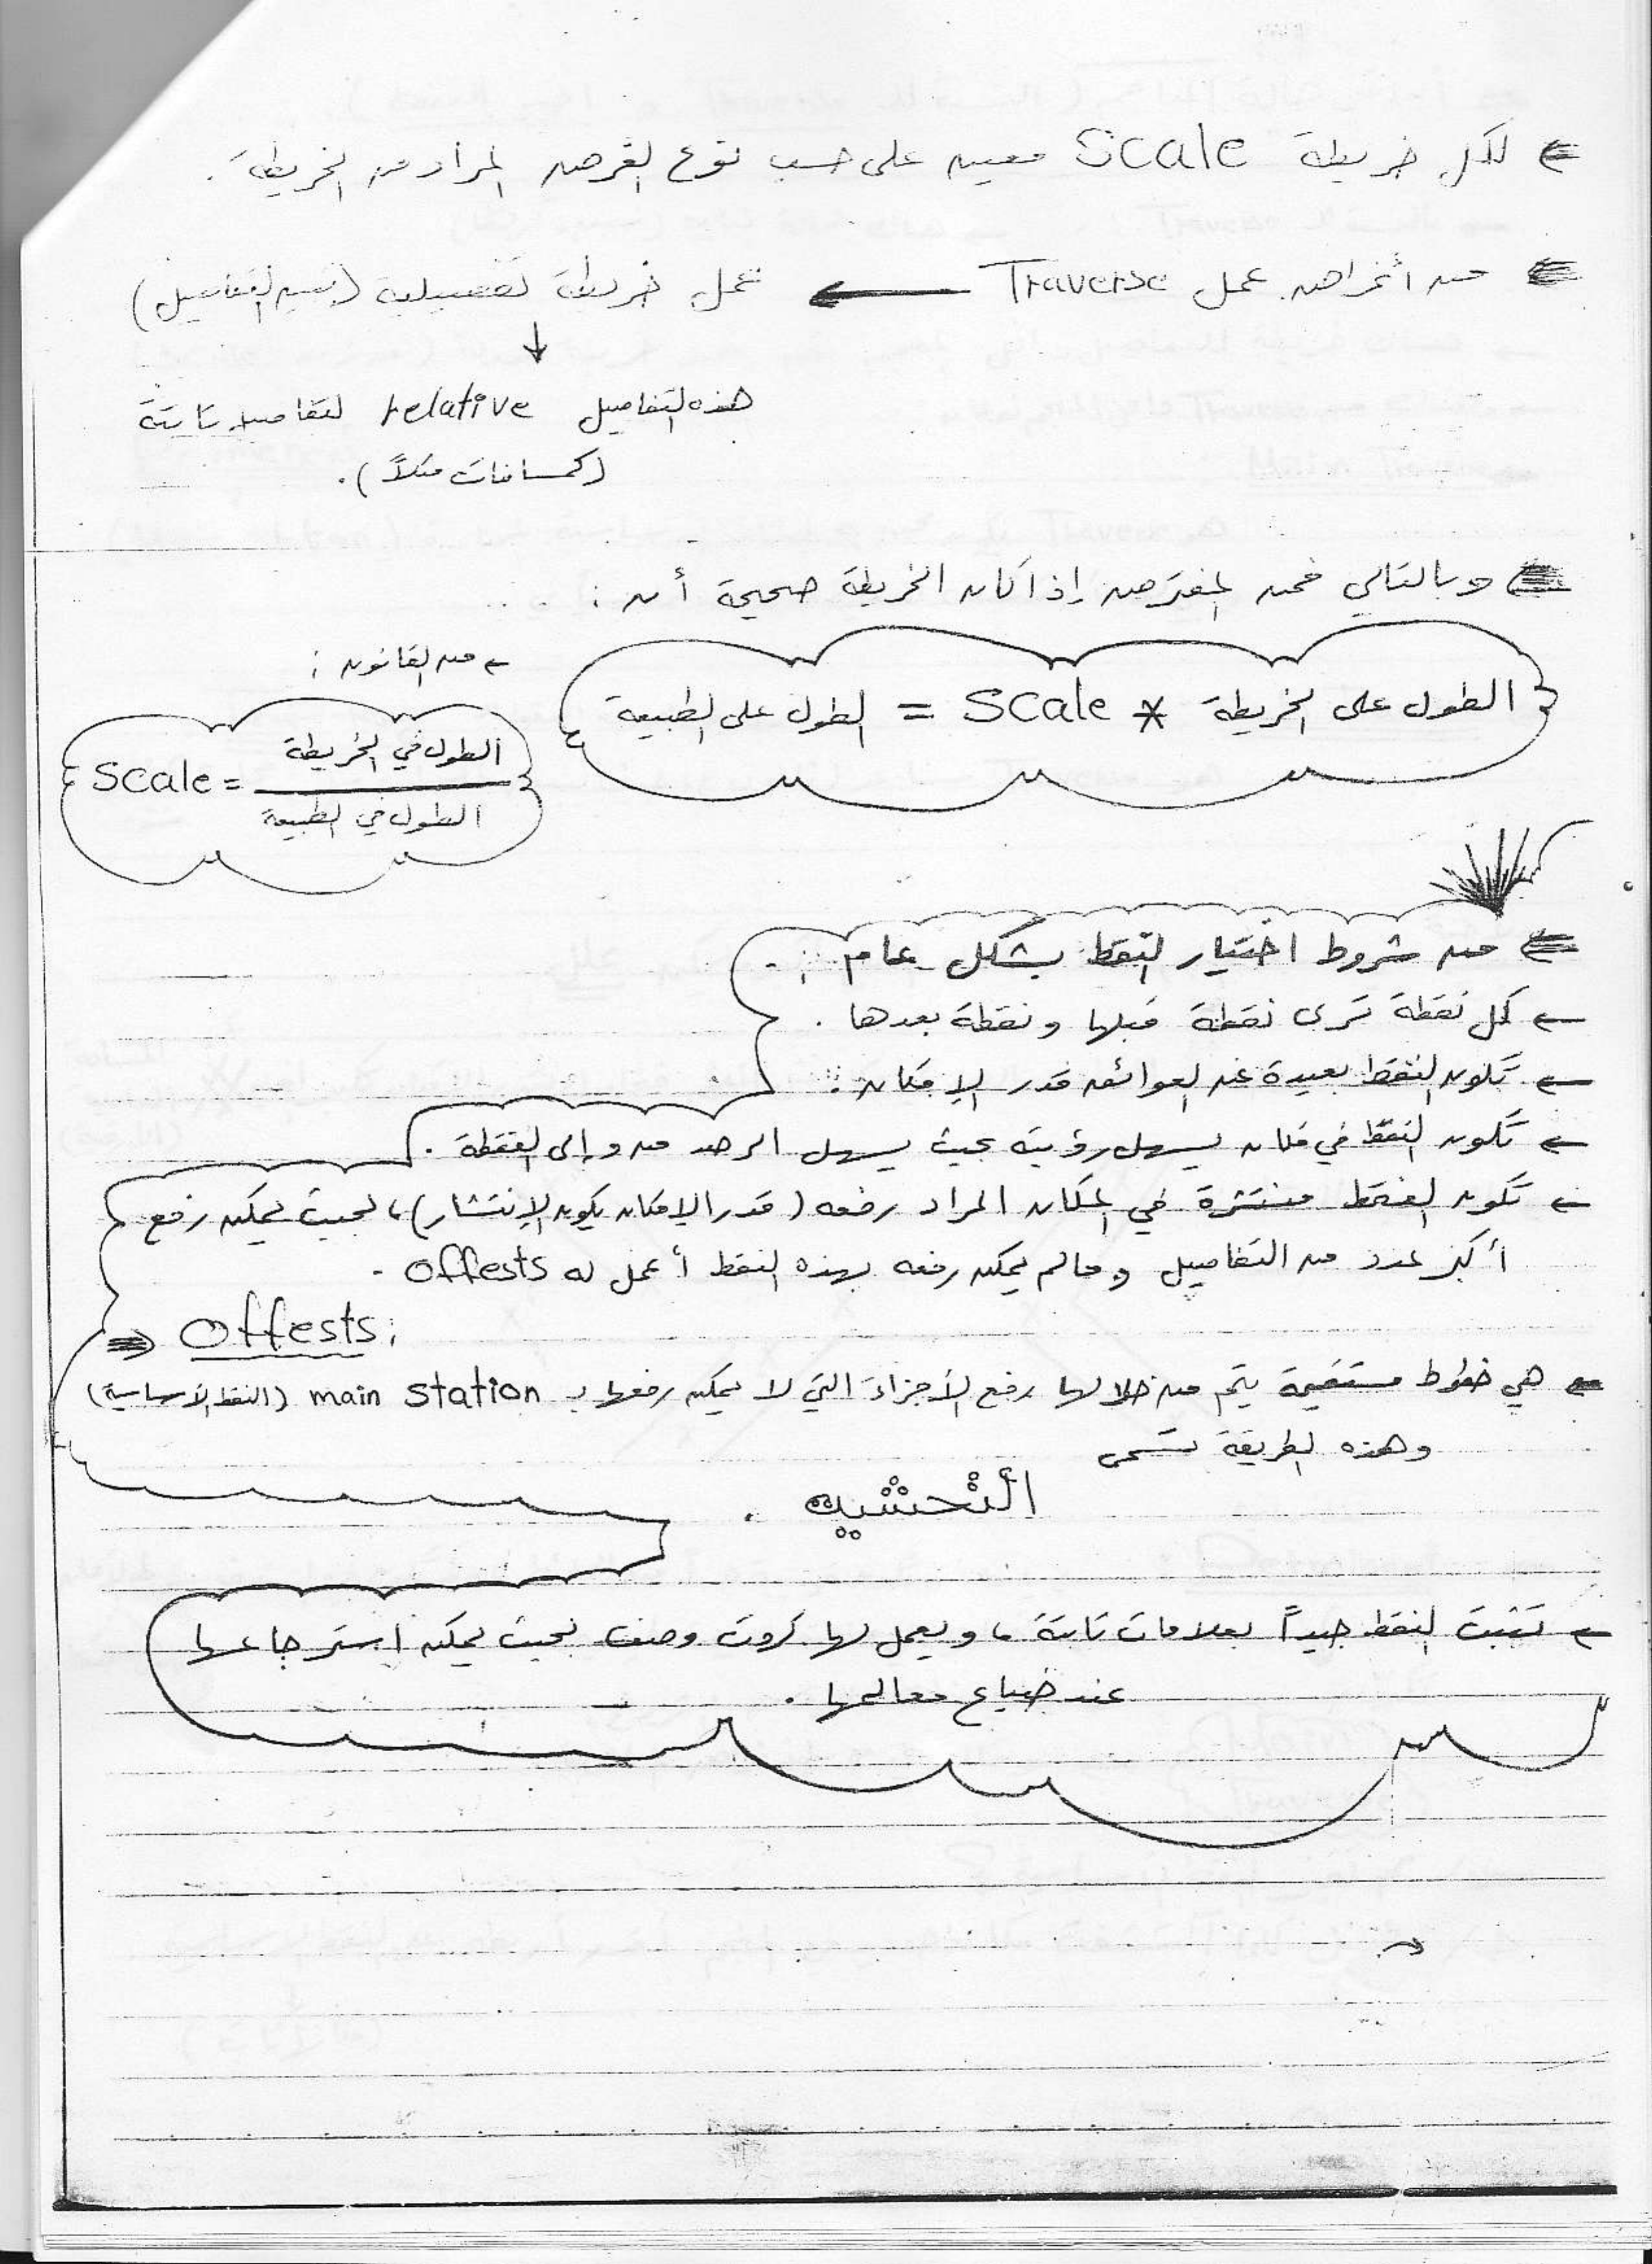 لكل خريطة Scale معين على حسب نوع الغرض المراد من الخريطة.
من أغراض عمل Traverse ← عمل خريطة تفصيلية (تبين التفاصيل)
↓
هذه التفاصيل relative لتفاصيل ثابتة
(كمسافات مثلاً).
وبالتالي فمن المفترض إذا كان الخريطة صحيحة أن:
الطول على الخريطة * Scale = الطول على الطبيعة
← من القانون:
الطول في الخريطة
Scale =
الطول في الطبيعة
من شروط اختيار النقط بشكل عام:
← كل نقطة ترى نقطة قبلها ونقطة بعدها.
← تكون النقط بعيدة عن العوائق قدر الإمكان.
← تكون النقط في مكان يسهل رؤيته بحيث يسهل الرصد من وإلى النقطة.
← تكون النقط منتشرة في المكان المراد رفعه (قدر الإمكان يكون الإنتشار)، بحيث يمكن رفع
أكبر عدد من التفاصيل وما لم يمكن رفعه بهذه النقط أعمل له offests.
⇒ Offests:
هي خطوط مستقيمة يتم من خلالها رفع الأجزاء التي لا يمكن رفعها بـ main station (النقط الأساسية)
وهذه الطريقة تسمى
التحشية.
← تثبت النقط جيداً بعلامات ثابتة، ويعمل لها كروت وصف بحيث يمكن استرجاعها
عند ضياع معالمها.